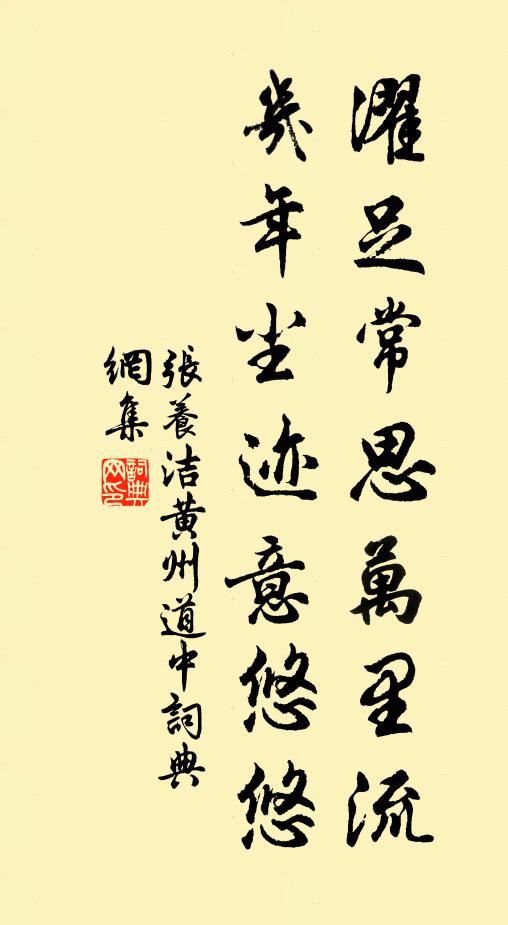 濯足常思萬里流
幾年尘迹意悠悠
張養洁黄州道中詞典
網集
詞典
网印